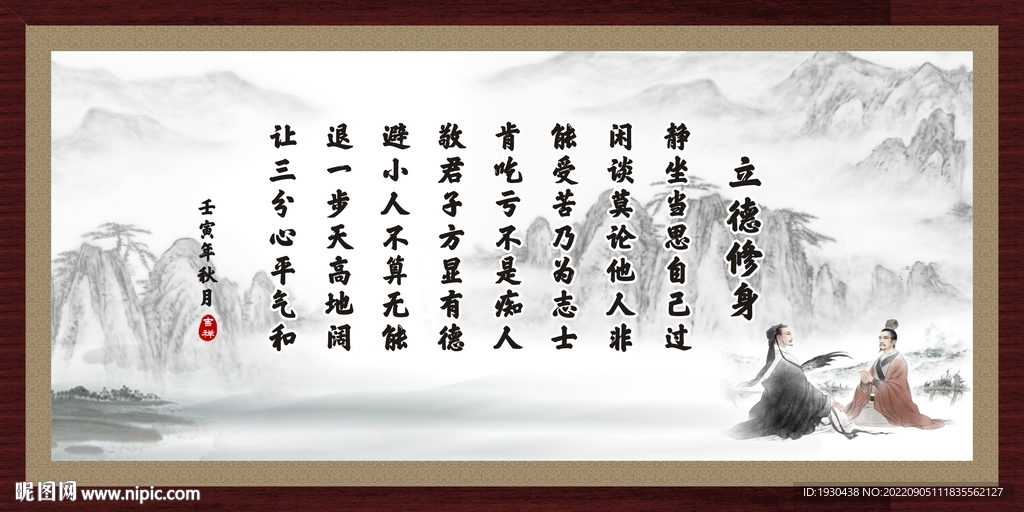 立德修身
静坐当思自己过
闲谈莫论他人非
能受苦乃为志士
肯吃亏不是痴人
敬君子方显有德
避小人不算无能
退一步天高地阔
让三分心平气和
壬寅年秋月
吉祥
昵图网 www.nipic.com
ID:1930438 NO:20220905111835562127